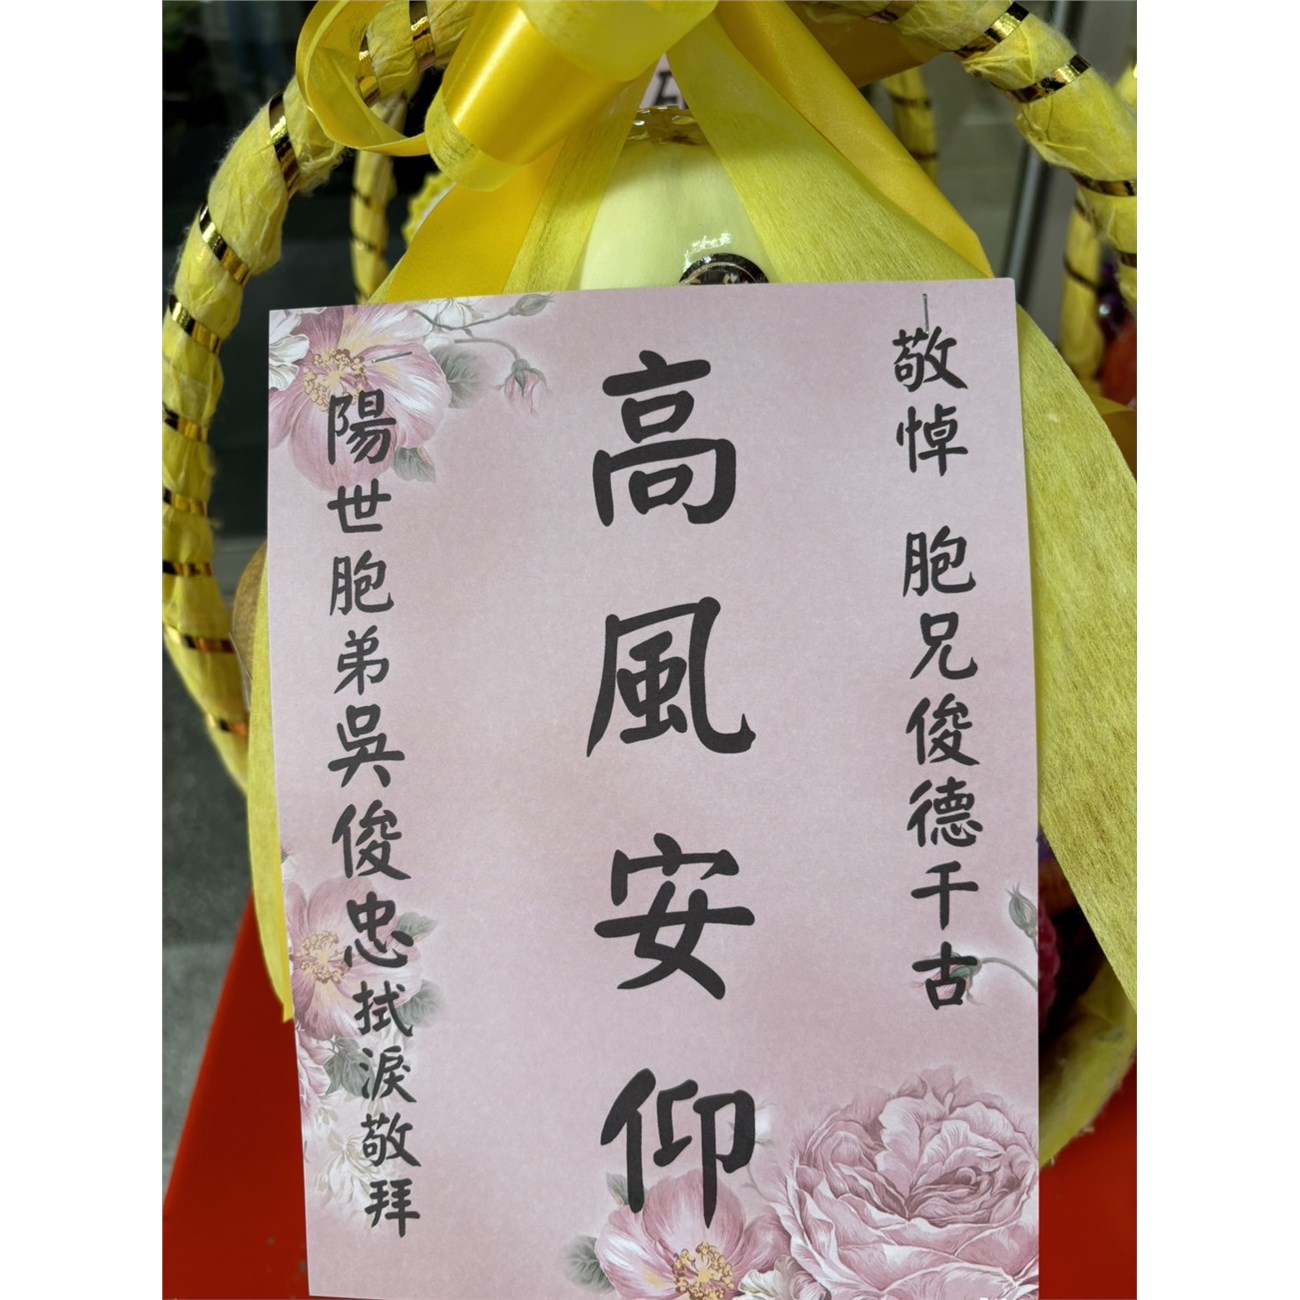 敬悼 胞兄俊德千古
高風安仰
陽世胞弟吳俊忠拭淚敬拜